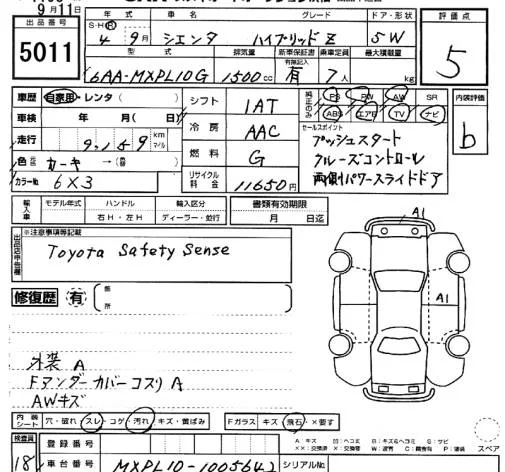 9月11日
出品番号
5011
年式
車名
グレード
ドア・形状
4年9月 シエンタ ハイブリッドZ 5W
型式
排気量
新車保証書
有無記入
乗車定員
最大積載量
6AA-MXPL10G 1500cc 有 7人 kg
評価点
5
車歴 自家用・レンタ( )
車検 年 月( 日)
走行 9,159 km マイル
色 カーキ → ( )
カラーNo 6X3
シフト 1AT
冷房 AAC
燃料 G
リサイクル料金 11650円
純正のみ
PS PW AW SR
ABS エアB TV ナビ
内装評価
b
セールスポイント
プッシュスタート
クルーズコントロール
両側パワースライドドア
輸入車
モデル年式
ハンドル
輸入区分
右H・左H
ディーラー・並行
書類有効期限
月 日迄
出品店申告欄
※注意事項等記載
Toyota Safety Sense
修復歴 有
箇所
外装 A
Fアンダーカバーコスリ A
AWキズ
A1
A1
内装シート
穴・破れ スレ・コゲ 汚れ キズ・黄ばみ
Fガラス キズ・飛石・×要す
スペア
検査員
18
登録番号
車台番号 MXPL10-1005642
シリアルNo.